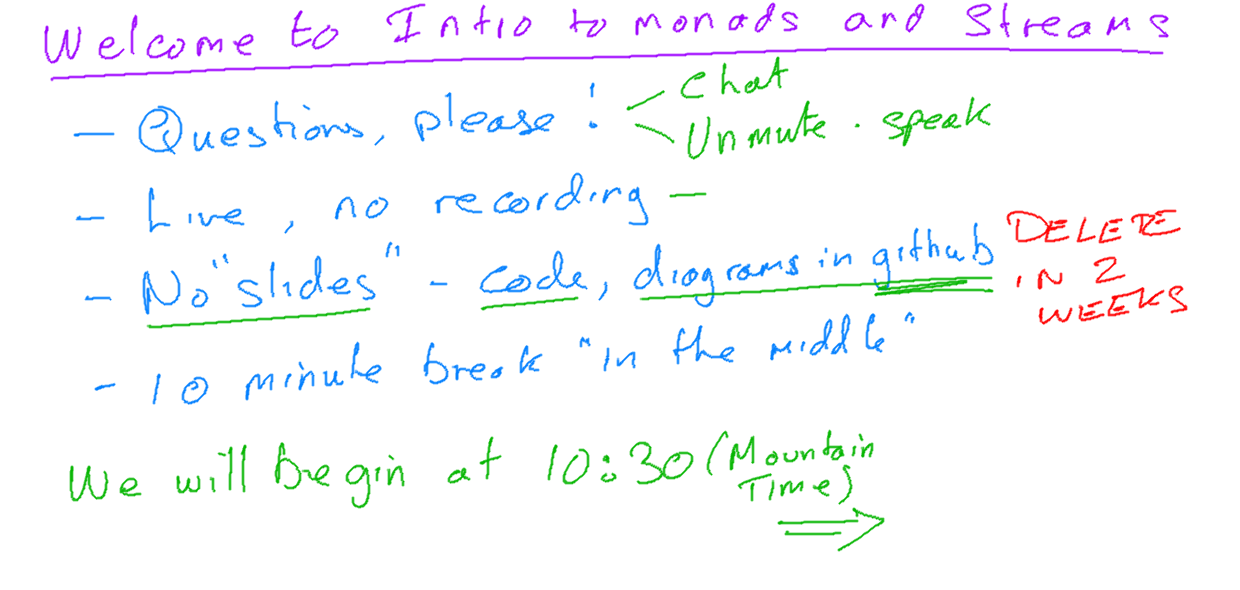 Welcome to Intro to monads and Streams
- Questions, please! < Chat
Unmute. speak
- Live, no recording -
- No "slides" - code, diagrams in github
DELETE
IN 2
WEEKS
- 10 minute break "in the middle"
We will begin at 10:30 (Mountain
Time)